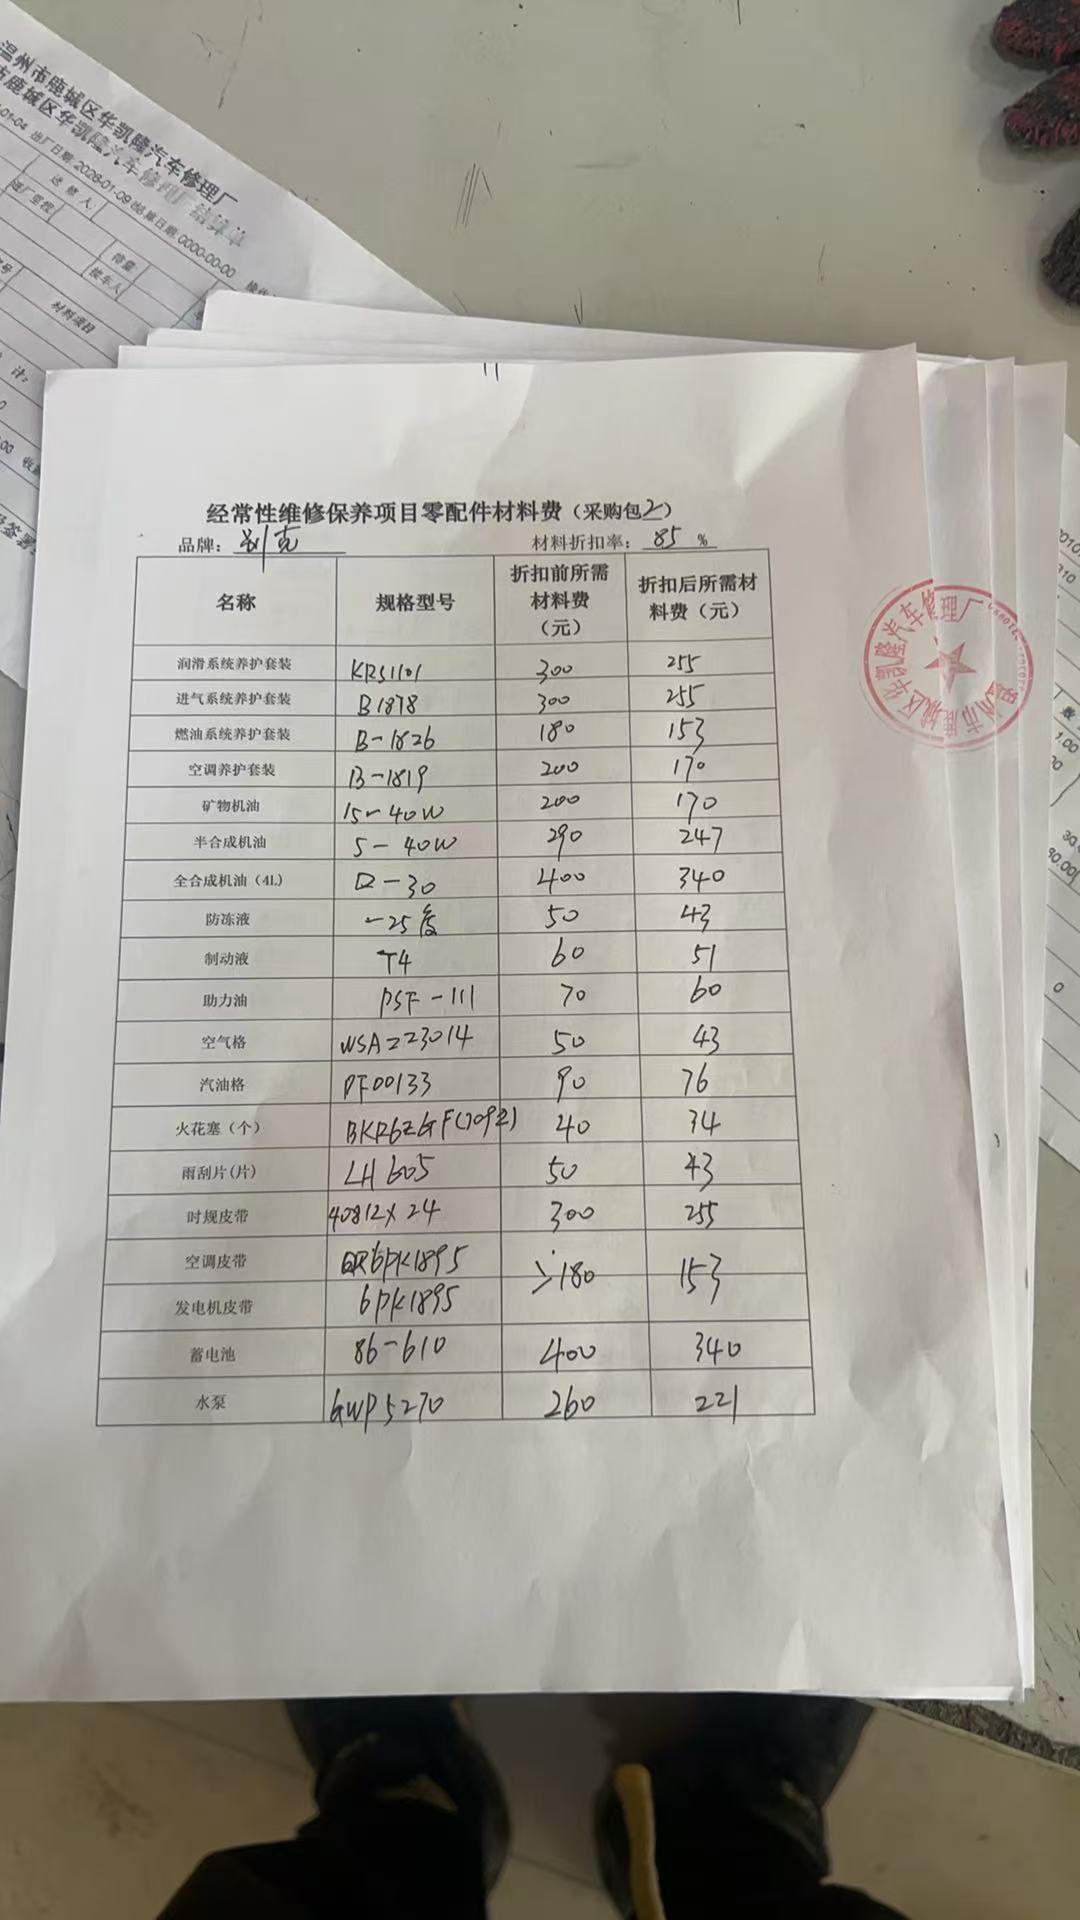 温州市鹿城区华凯隆汽车修理厂
市鹿城区华凯隆汽车修理厂结算单
01-04 出厂日期:2026-01-09 结算日期:0000-00-00
送修人:
进厂里程
接车人
材料项目
计:
经常性维修保养项目零配件材料费（采购包2）
品牌：别克 材料折扣率：85 %
名称 规格型号 折扣前所需材料费（元） 折扣后所需材料费（元）
润滑系统养护套装 KRS1101 300 255
进气系统养护套装 B1878 300 255
燃油系统养护套装 B-1826 180 153
空调养护套装 B-1819 200 170
矿物机油 15-40W 200 170
半合成机油 5-40W 290 247
全合成机油（4L） -30 400 340
防冻液 -25度 50 43
制动液 T4 60 51
助力油 PSF-111 70 60
空气格 WSAZ23014 50 43
汽油格 PF00133 90 76
火花塞（个） 40 34
雨刮片(片) LH605 50 43
时规皮带 40812X24 300 255
空调皮带 6PK1895 180 153
发电机皮带 6PK1895
蓄电池 86-610 400 340
水泵 GWP5270 260 221
温州市鹿城区华凯隆汽车修理厂